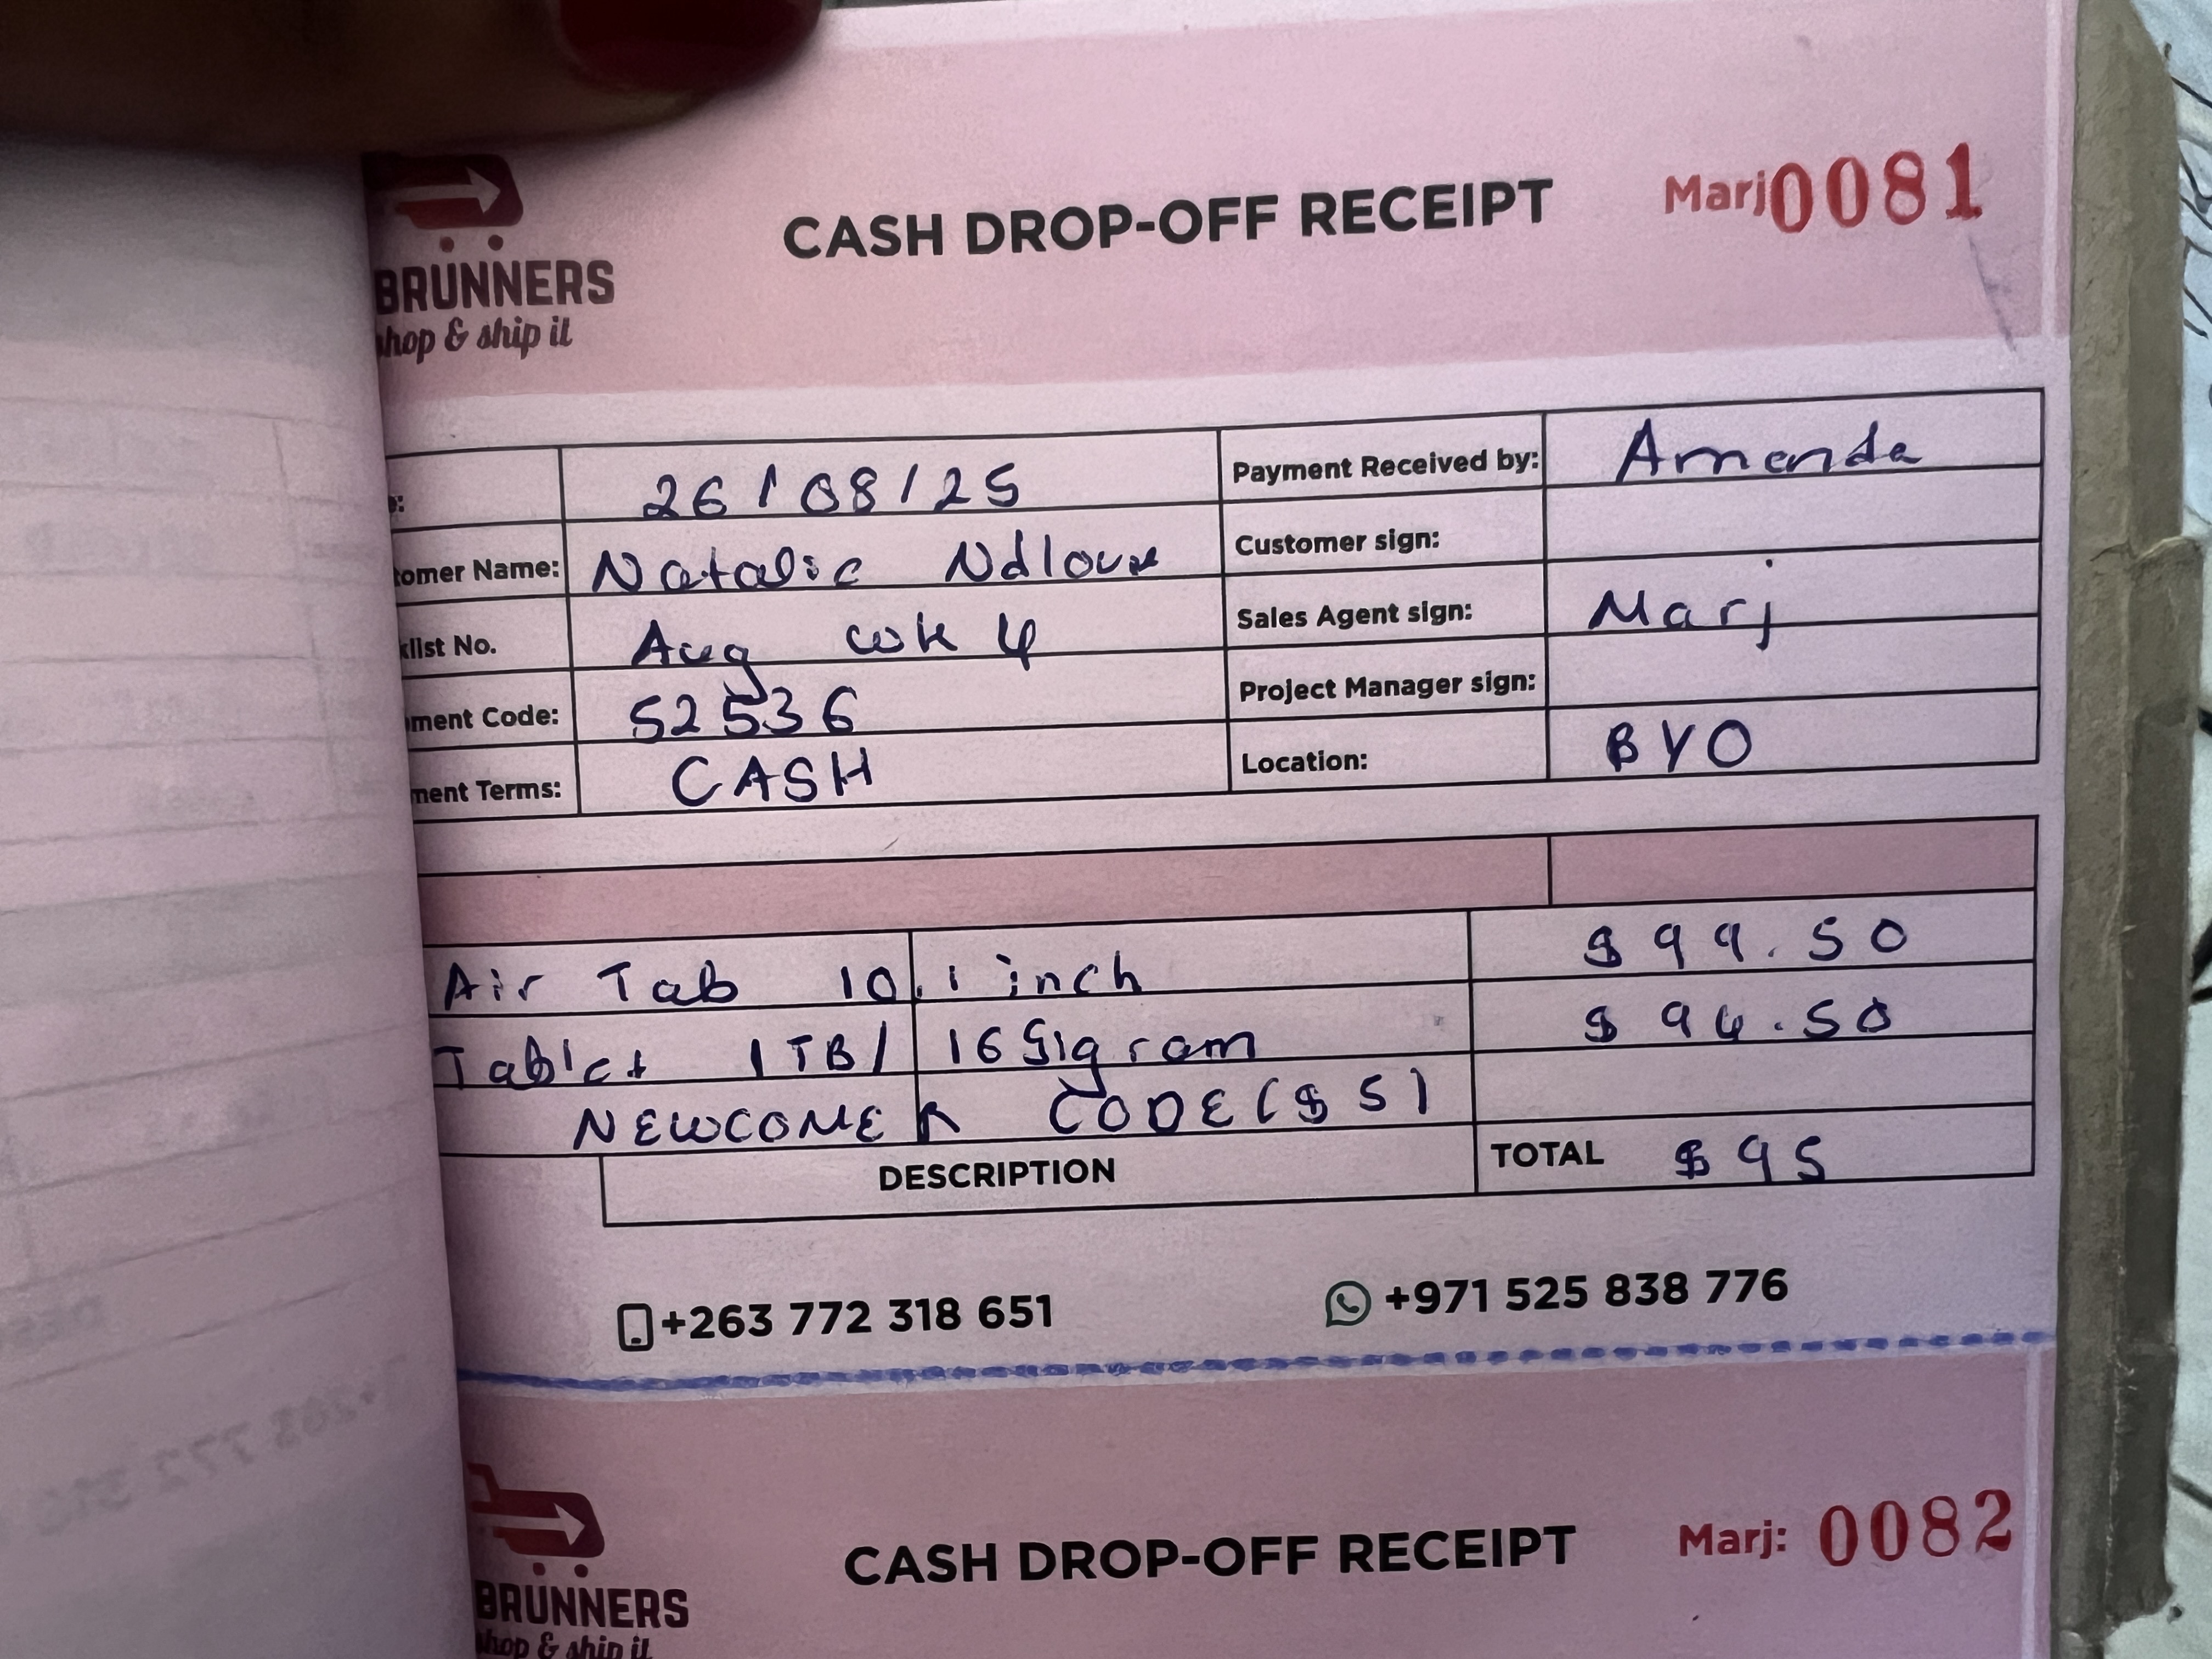 CASH DROP-OFF RECEIPT
Marj 0081
BRUNNERS
hop & ship it
e: 26/08/25
Payment Received by: Amanda
tomer Name: Natalie Ndlovu
Customer sign:
klist No. Aug wk 4
Sales Agent sign: Marj
ment Code: 52536
Project Manager sign:
ment Terms: CASH
Location: BYO
Air Tab 10.1 inch $99.50
Tablet 1TB/ 16 Gig ram $94.50
NEWCOMER CODE ($5)
DESCRIPTION
TOTAL $95
+263 772 318 651
+971 525 838 776
CASH DROP-OFF RECEIPT
Marj: 0082
BRUNNERS
hop & ship it